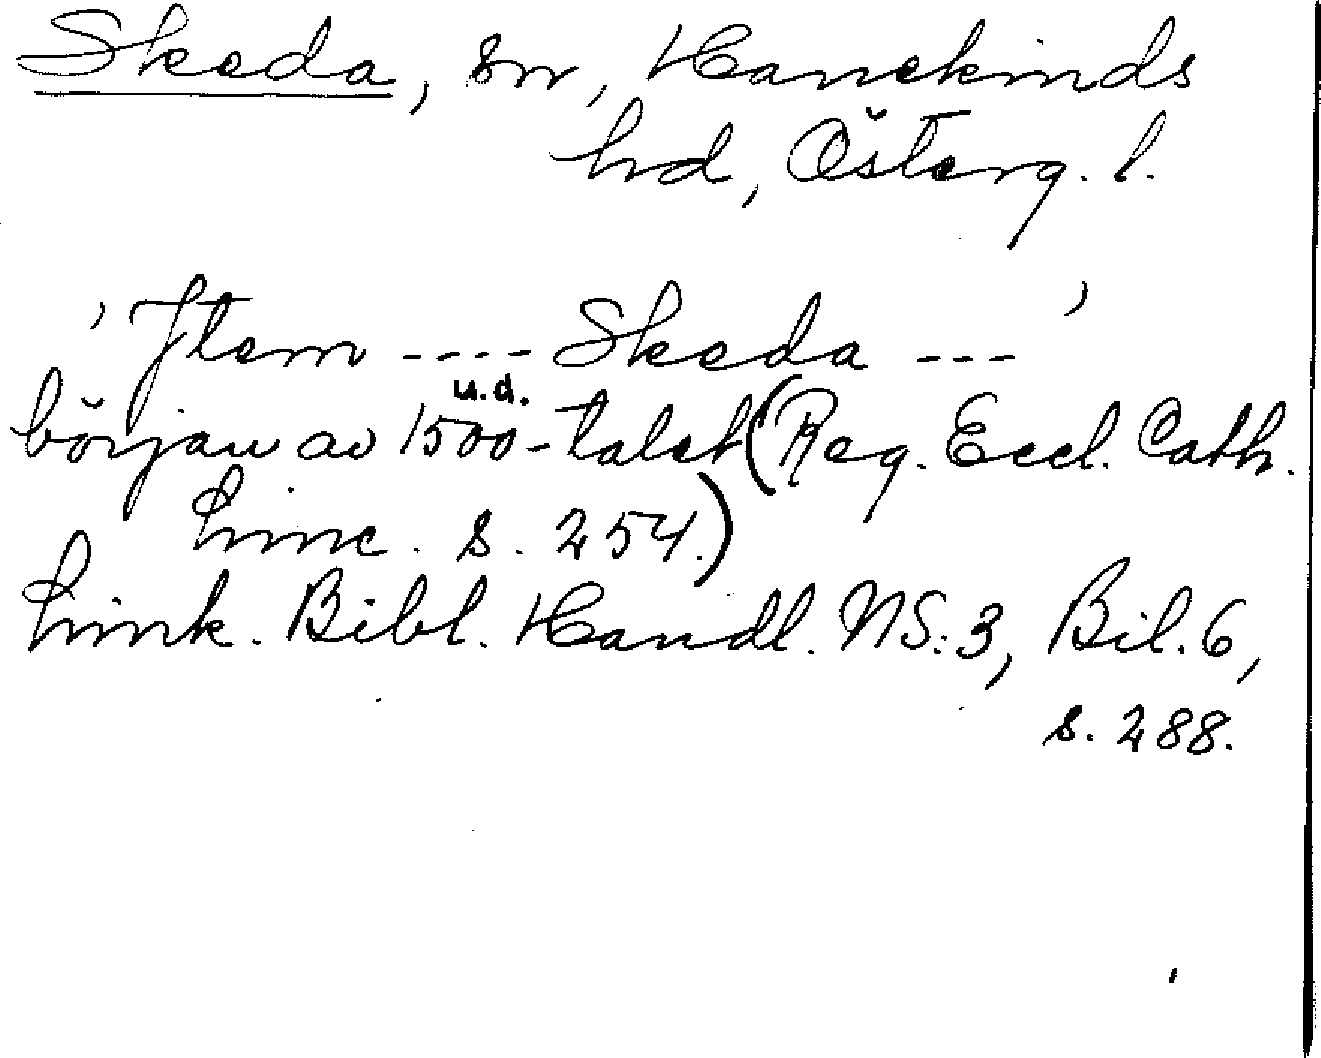 Skeda, sn, Hanekinds
hd, Österg. l.
'Jtem ---- Skeda ---'
u.d.
början av 1500-talet (Reg. Eccl. Cath.
Linc. s. 254.)
Link. Bibl. Handl. NS:3, Bil. 6,
s. 288.